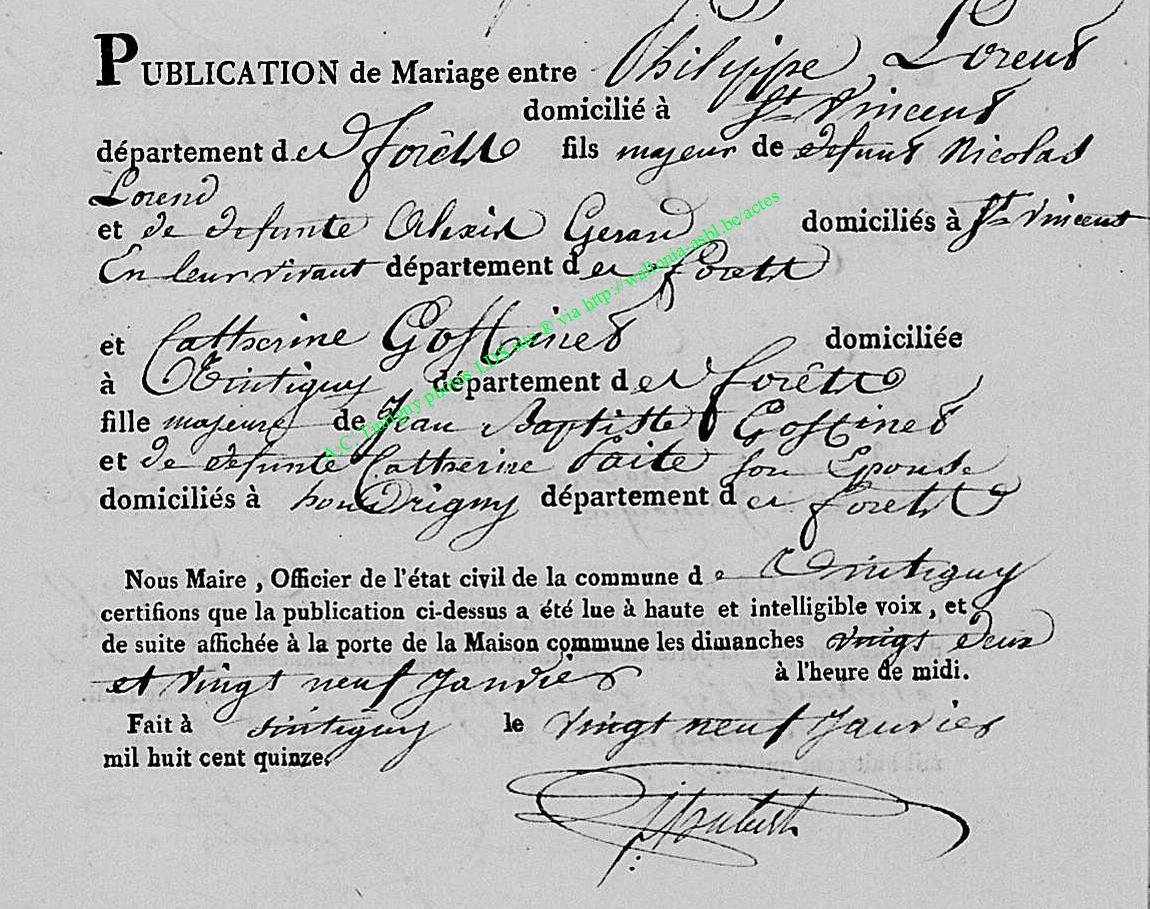 PUBLICATION de Mariage entre Philippe Lorent
domicilié à St Vincent
département des forêts fils majeur de defunt Nicolas
Lorend
et de defunte Gerard domiciliés à St Vincent
En leur vivant département des forett
et Catherine Gosseinet domiciliée
à Tintigny département des forêtts
fille majeure de Jean Baptiste Gosseinet
et de defunte Catherine son Epouse
domiciliés à houdrigny département des foretts
Nous Maire, Officier de l'état civil de la commune de Tintigny
certifions que la publication ci-dessus a été lue à haute et intelligible voix, et
de suite affichée à la porte de la Maison commune les dimanches vingt deux
et vingt neuf Janvier à l'heure de midi.
Fait à tintigny le vingt neuf Janvier
mil huit cent quinze.
A.C. Tintigny photos LDS via http://wallonia-asbl.be/actes